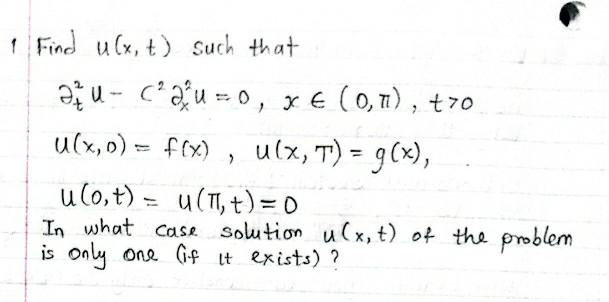 1 Find u(x, t) such that
∂²ₜu - c²∂²ₓu = 0, x ∈ (0, π), t>0
u(x,0) = f(x), u(x, T) = g(x),
u(0,t) = u(π,t) = 0
In what case solution u(x,t) of the problem
is only one (if it exists)?